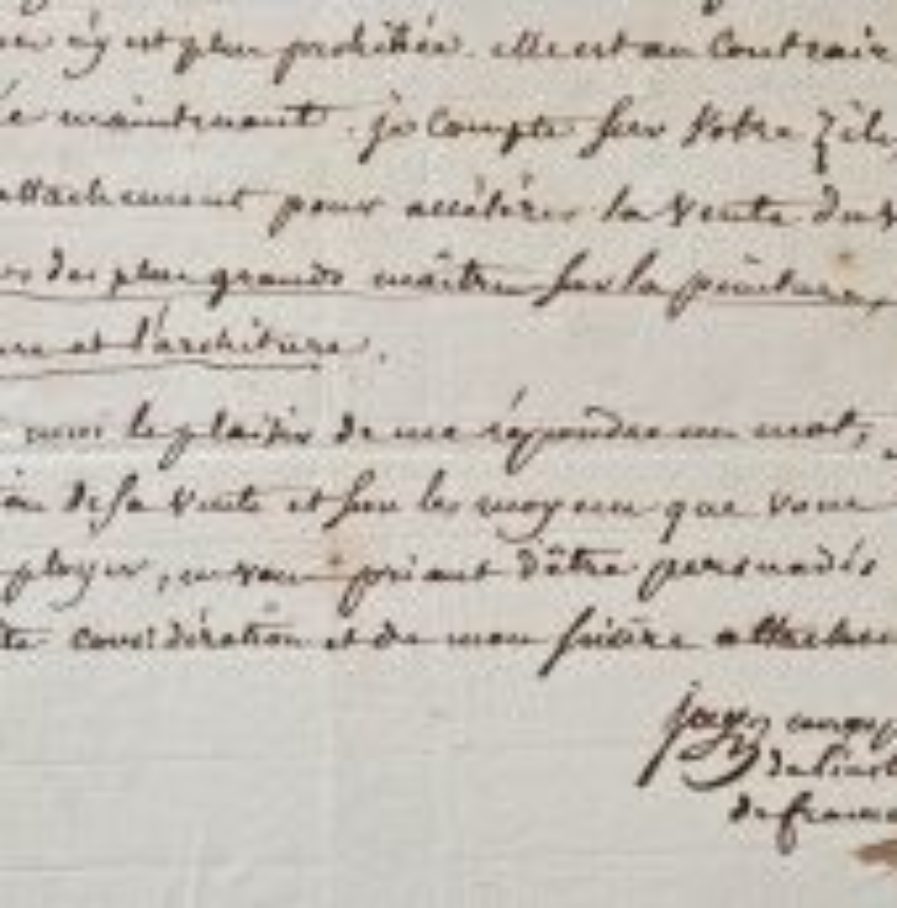 n'y est plus prohibée. elle est au Contrair
maintenant. je Compte sur votre Zèle
attachement pour accélérer la vente du
des plus grands maîtres sur la peinture,
et l'architure.
moi le plaisir de me répondre un mot,
de sa vente et sur les moyens que vous
ployer, en vous priant d'être persuadés
considération et de mon sincère attacheme
de l'inst
de france